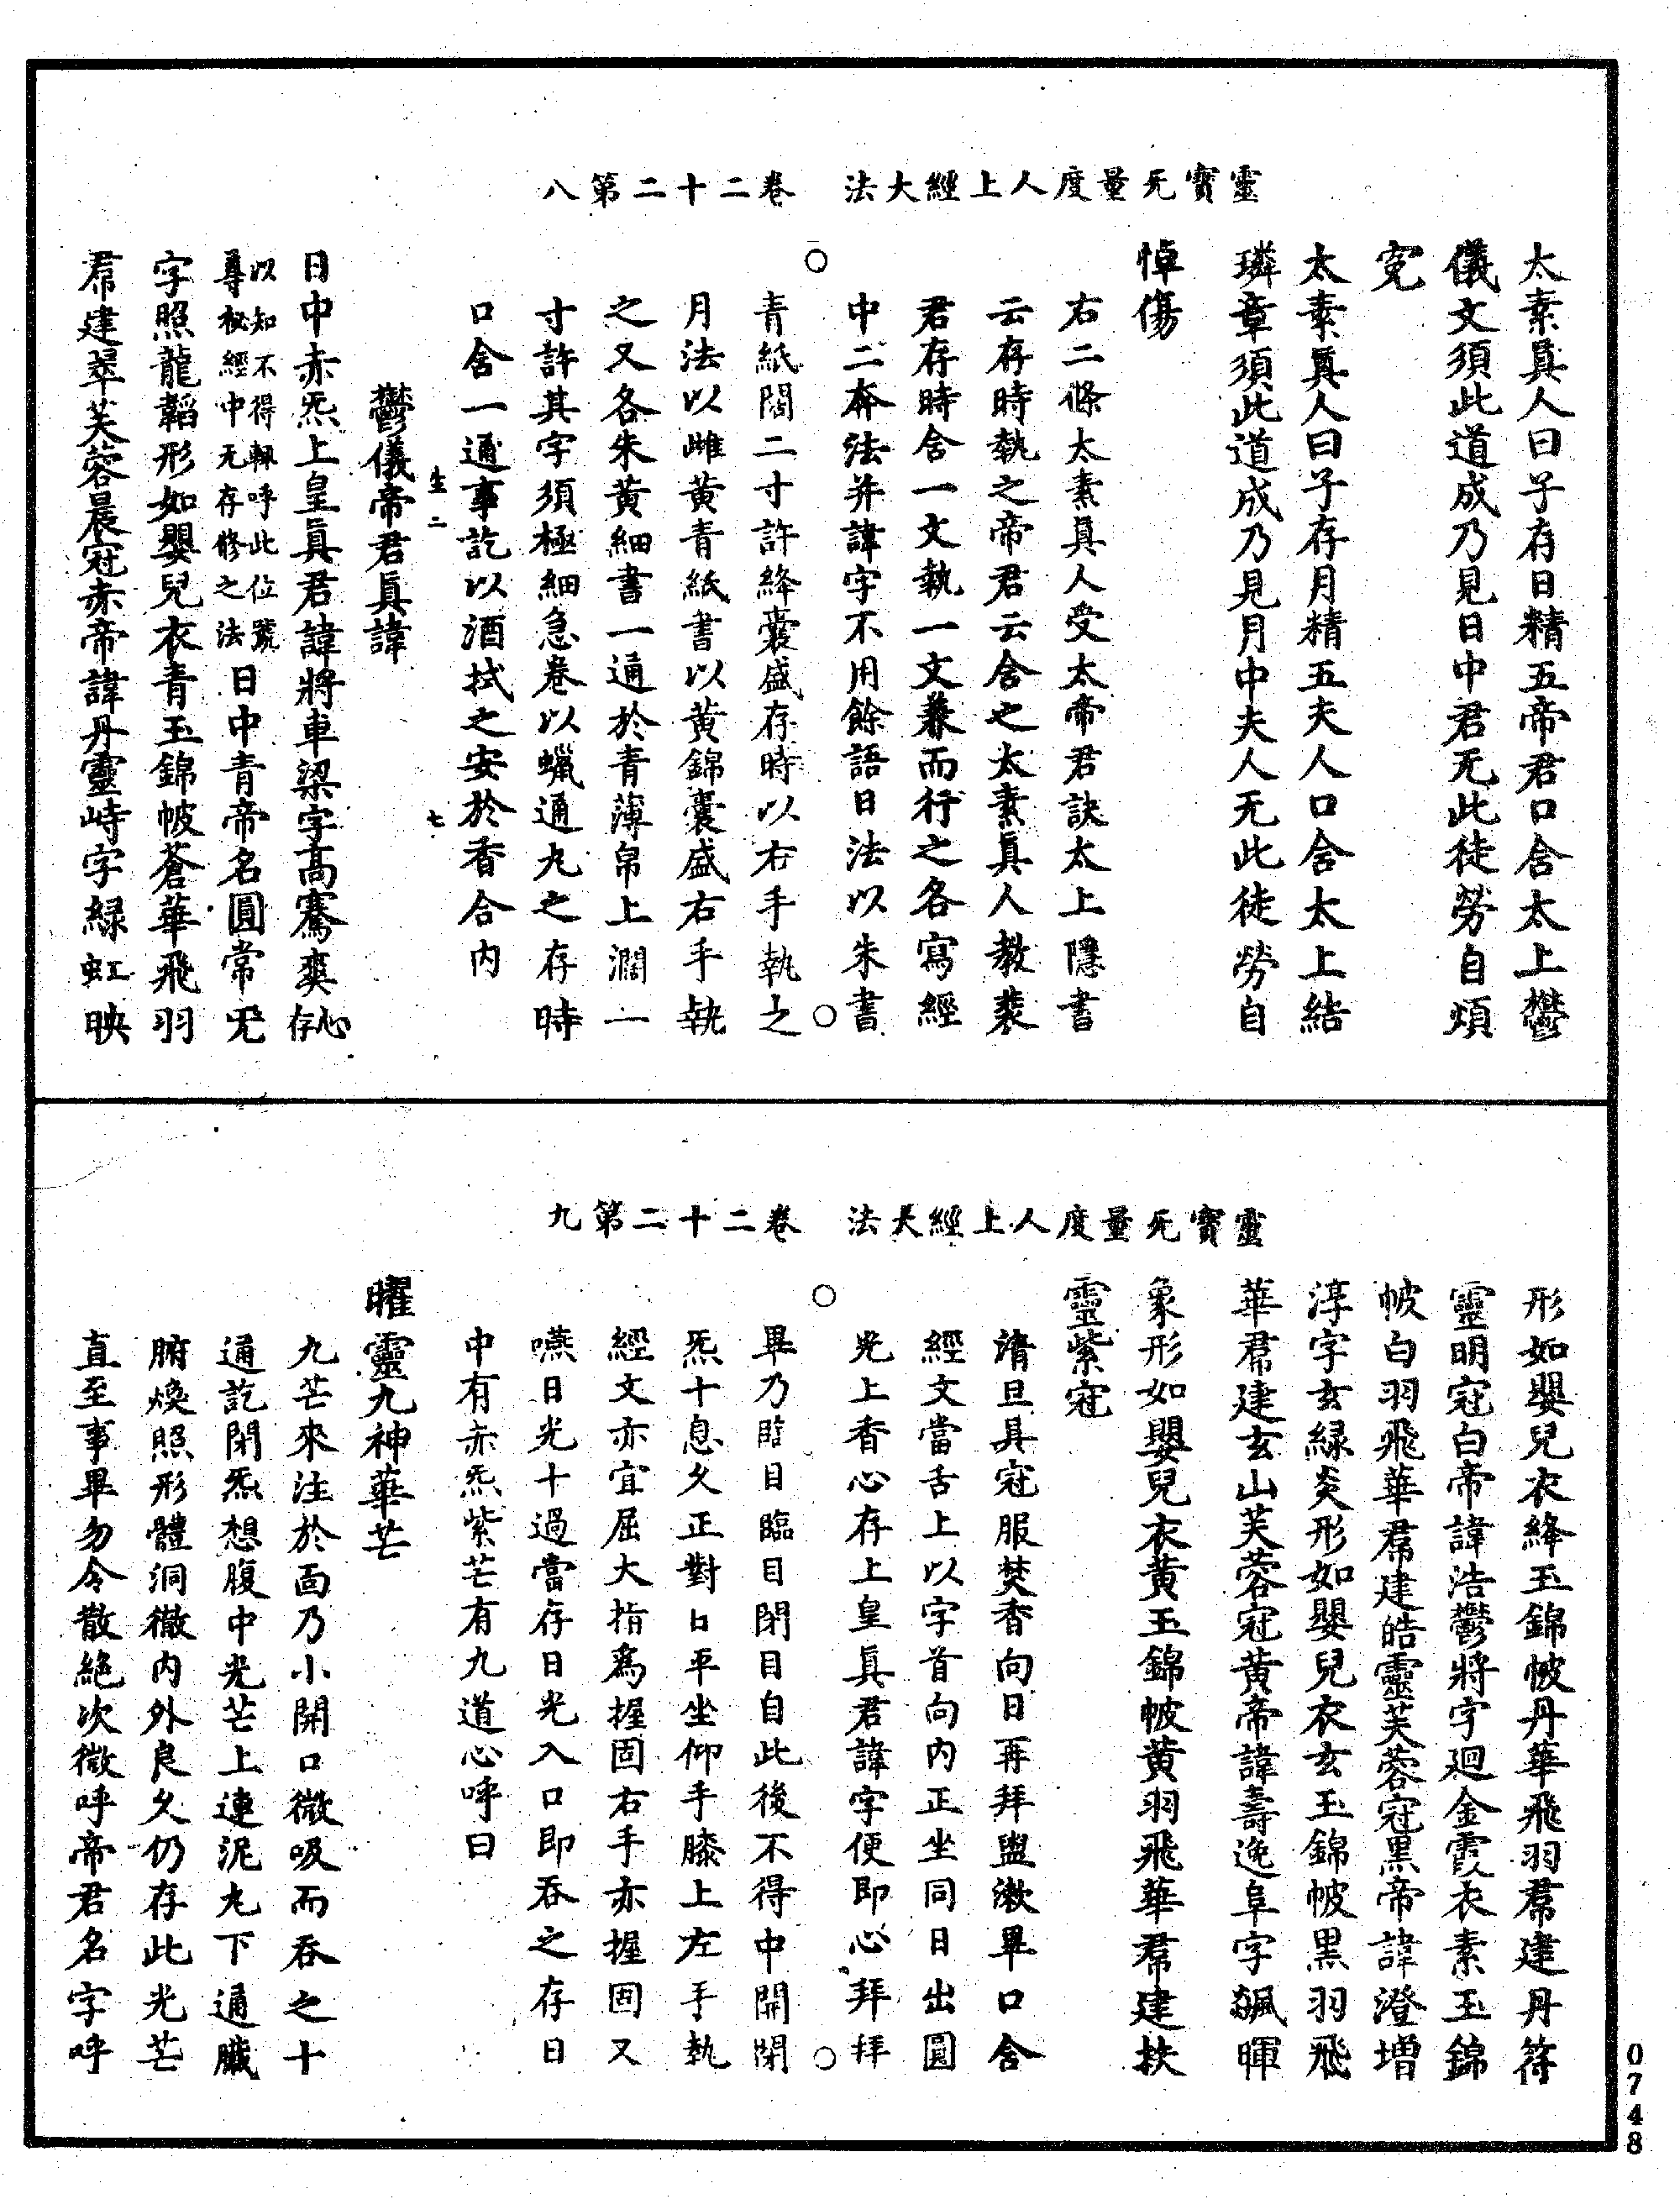 靈寶无量度人上經大法　卷二十二第八
太素眞人曰子存日精五帝君口含太上鬱
儀文須此道成乃見日中君无此徒勞自煩
寃
太素眞人曰子存月精五夫人口含太上結
璘章須此道成乃見月中夫人无此徒勞自
悼傷
右二條太素眞人受太帝君訣太上隱書
云存時執之帝君云含之太素眞人教裴
君存時含一文執一文兼而行之各寫經
中二奔法并諱字不用餘語日法以朱書
青紙闊二寸許絳囊盛存時以右手執之
月法以雌黃青紙書以黃錦囊盛右手執
之又各朱黃細書一通於青薄帛上濶一
寸許其字須極細急卷以蠟通丸之存時
口含一通事訖以酒拭之安於香合內
生二　七
鬱儀帝君眞諱
日中赤炁上皇眞君諱將車梁字高騫奭存心
以知不得輒呼此位號
尊秘經中无存修之法日中青帝名圓常无
字照龍韜形如嬰兒衣青玉錦帔蒼華飛羽
帬建翠芙蓉晨冠赤帝諱丹靈峙字綠虹映
靈寶无量度人上經大法　卷二十二第九
形如嬰兒衣絳玉錦帔丹華飛羽帬建丹符
靈明冠白帝諱浩鬱將字廻金霞衣素玉錦
帔白羽飛華帬建皓靈芙蓉冠黑帝諱澄增
淳字玄綠炎形如嬰兒衣玄玉錦帔黑羽飛
華帬建玄山芙蓉冠黃帝諱壽逸阜字飆暉
象形如嬰兒衣黃玉錦帔黃羽飛華帬建扶
靈紫冠
清旦具冠服焚香向日再拜盥漱畢口含
經文當舌上以字首向內正坐同日出圓
光上香心存上皇眞君諱字便即心拜拜
畢乃臨目臨目閉目自此後不得中開閉
炁十息久正對日平坐仰手膝上左手執
經文亦宜屈大指爲握固右手亦握固又
嚥日光十過當存日光入口即吞之存日
中有赤炁紫芒有九道心呼曰
曜靈九神華芒
九芒來注於面乃小開口微吸而吞之十
通訖閉炁想腹中光芒上連泥丸下通臟
腑煥照形體洞徹內外良久仍存此光芒
直至事畢勿令散絕次微呼帝君名字呼
0748